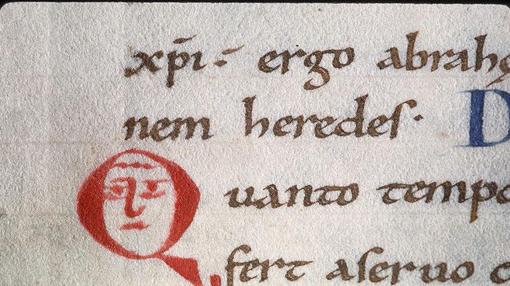 xp̄i. ergo abrahę
nem heredes. D
Quanto tempo
fert aseruo